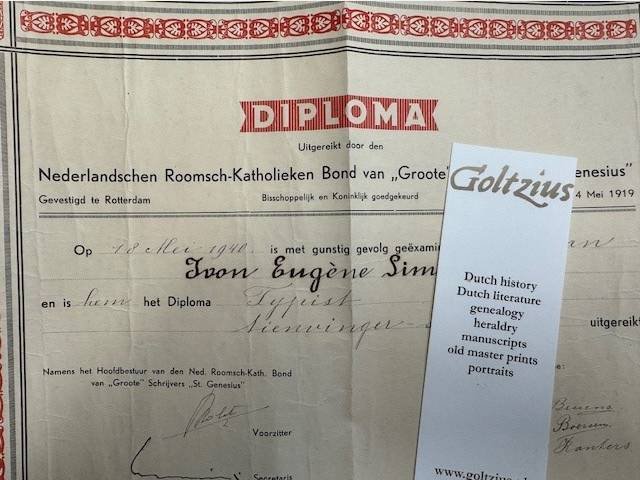 DIPLOMA
Uitgereikt door den
Nederlandschen Roomsch-Katholieken Bond van „Groote" Genesius"
Gevestigd te Rotterdam Bisschoppelijk en Koninklijk goedgekeurd 4 Mei 1919
Op 18 Mei 1940 is met gunstig gevolg geëxami
Ivon Eugène Sim
en is hem het Diploma Typist
uitgereikt
Namens het Hoofdbestuur van den Ned. Roomsch-Kath. Bond
van „Groote" Schrijvers „St. Genesius"
Voorzitter
Secretaris
Boersen
Kanters
Goltzius
Dutch history
Dutch literature
genealogy
heraldry
manuscripts
old master prints
portraits